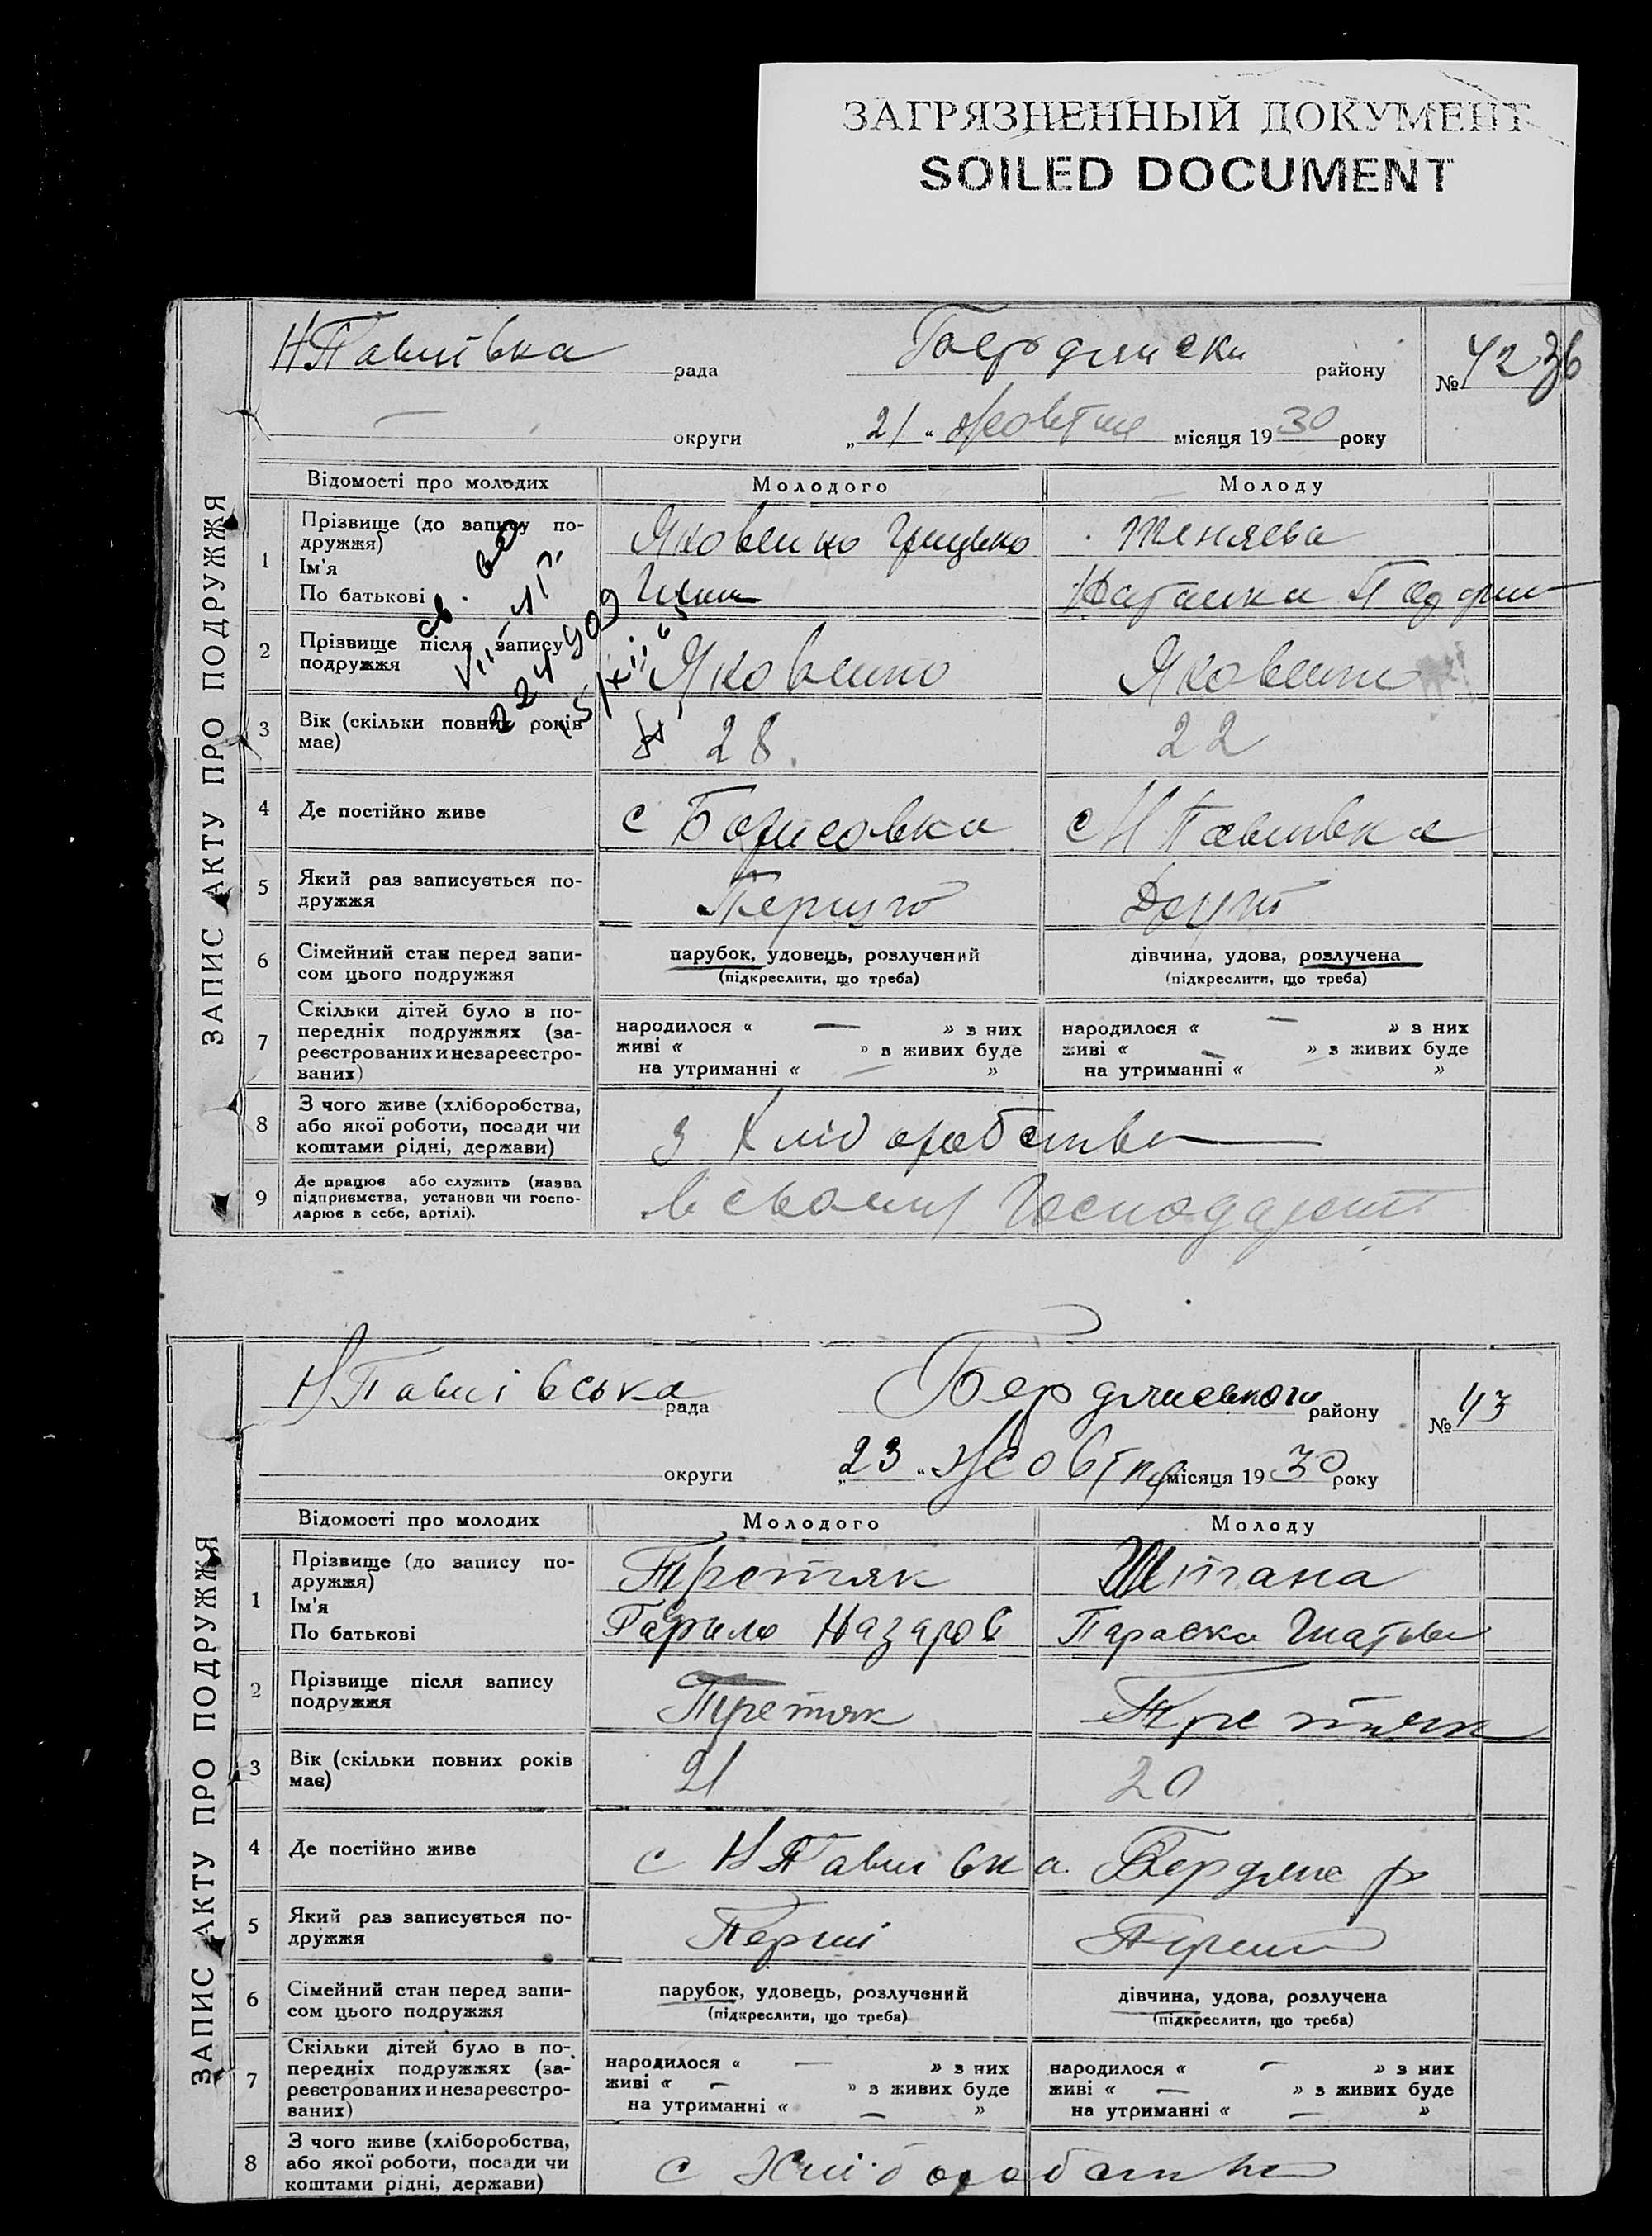 ЗАГРЯЗНЕННЫЙ ДОКУМЕНТ
SOILED DOCUMENT
ЗАПИС АКТУ ПРО ПОДРУЖЖЯ
рада
району
№ 42 36
округи „21“ місяця 1930 року
Відомості про молодих Молодого Молоду
1 Прізвище (до запису по-
дружжя)
Ім'я
По батькові
Яковенко Грицько
2 Прізвище після запису
подружжя
Яковенко Яковенко
3 Вік (скільки повних років
має)
28. 22
4 Де постійно живе с Борисовка с Н Павлівка
5 Який раз записується по-
дружжя
6 Сімейний стан перед запи-
сом цього подружжя
парубок, удовець, розлучений
(підкреслити, що треба)
дівчина, удова, розлучена
(підкреслити, що треба)
7 Скільки дітей було в по-
передніх подружжях (за-
реєстрованих и незареєстро-
ваних)
народилося « — » з них
живі « » в живих буде
на утриманні « — »
народилося « — » з них
живі « — » з живих буде
на утриманні « »
8 З чого живе (хліборобства,
або якої роботи, посади чи
коштами рідні, держави)
з Хліборобства
9 Де працює або служить (назва
підприємства, установи чи госпо-
дарює в себе, артілі).
ЗАПИС АКТУ ПРО ПОДРУЖЖЯ
Н Павлівська рада Бердянського району № 43
округи „23“ Жовтня місяця 1930 року
Відомості про молодих Молодого Молоду
1 Прізвище (до запису по-
дружжя)
Ім'я
По батькові
Третяк
Гаврило Назаров Параска
2 Прізвище після запису
подружжя
Третяк Третяк
3 Вік (скільки повних років
має)
21 20
4 Де постійно живе с Н Павлівка Бердянс р
5 Який раз записується по-
дружжя
Перший
6 Сімейний стан перед запи-
сом цього подружжя
парубок, удовець, розлучений
(підкреслити, що треба)
дівчина, удова, розлучена
(підкреслити, що треба)
7 Скільки дітей було в по-
передніх подружжях (за-
реєстрованих и незареєстро-
ваних)
народилося « — » з них
живі « — » з живих буде
на утриманні « — »
народилося « — » з них
живі « — » з живих буде
на утриманні « — »
8 З чого живе (хліборобства,
або якої роботи, посади чи
коштами рідні, держави)
с Хліборобства